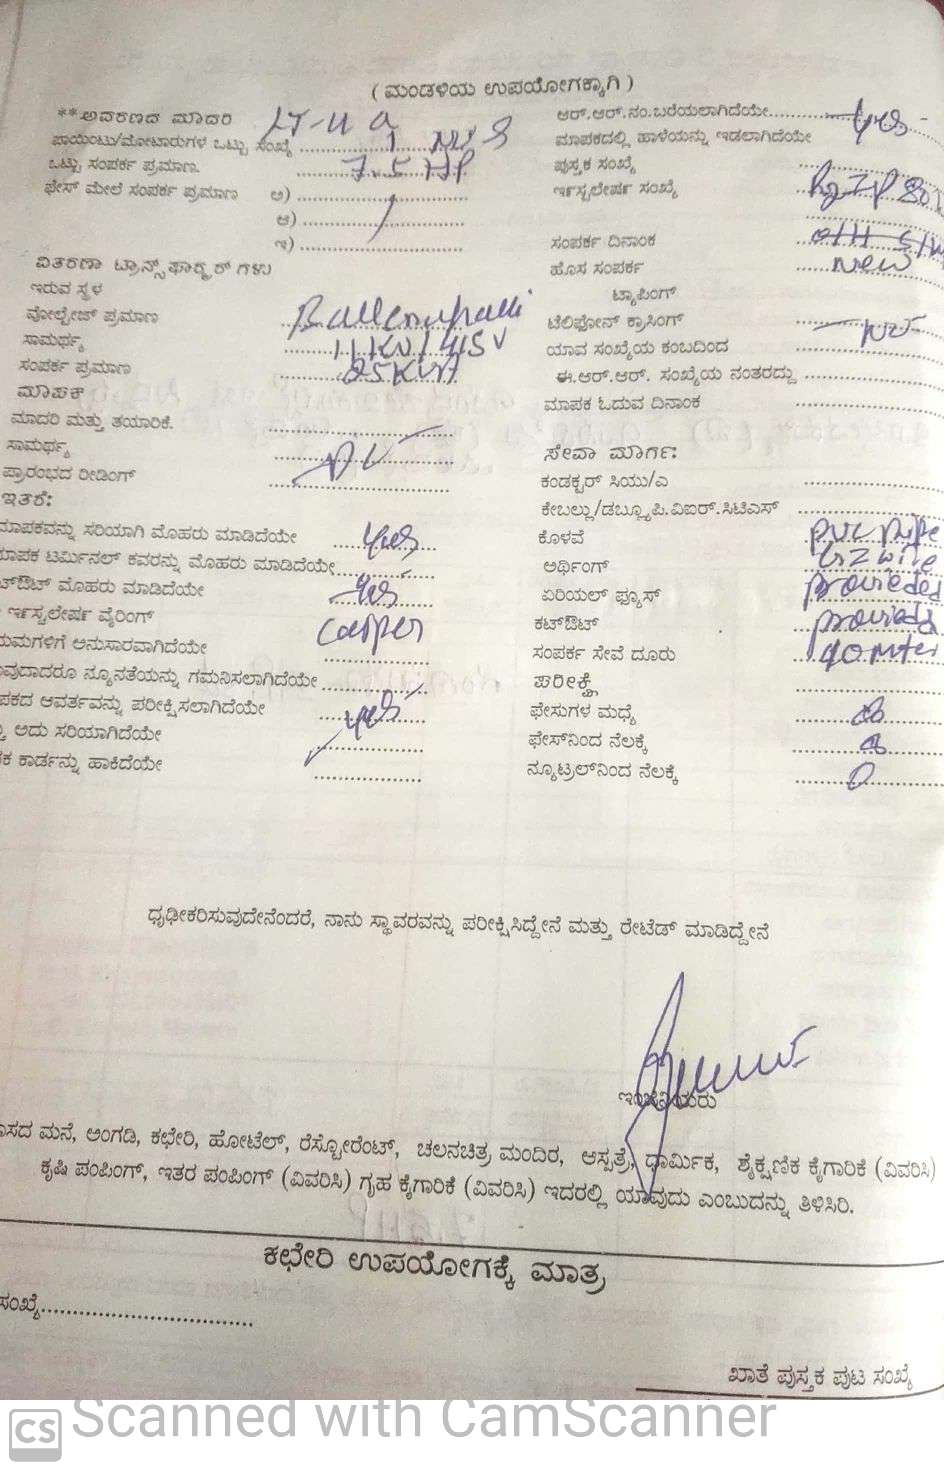 ( ಮಂಡಳಿಯ ಉಪಯೋಗಕ್ಕಾಗಿ )
**ಆವರಣದ ಮಾದರಿ
ಪಾಯಿಂಟು/ಮೋಟಾರುಗಳ ಒಟ್ಟು ಸಂಖ್ಯೆ 1 NOS
ಒಟ್ಟು ಸಂಪರ್ಕ ಪ್ರಮಾಣ. 7.5 HP
ಫೇಸ್ ಮೇಲೆ ಸಂಪರ್ಕ ಪ್ರಮಾಣ ಅ)
ಆ)
ಇ)
ವಿತರಣಾ ಟ್ರಾನ್ಸ್‌ಫಾರ್ಮರ್‌ಗಳು
ಇರುವ ಸ್ಥಳ
ವೋಲ್ಟೇಜ್ ಪ್ರಮಾಣ
ಸಾಮರ್ಥ್ಯ 11KV/415V
ಸಂಪರ್ಕ ಪ್ರಮಾಣ 25KVA
ಮಾಪಕ
ಮಾದರಿ ಮತ್ತು ತಯಾರಿಕೆ.
ಸಾಮರ್ಥ್ಯ
ಪ್ರಾರಂಭದ ರೀಡಿಂಗ್
ಇತರೆ:
ಮಾಪಕವನ್ನು ಸರಿಯಾಗಿ ಮೊಹರು ಮಾಡಿದೆಯೇ yes
ಮಾಪಕ ಟರ್ಮಿನಲ್ ಕವರನ್ನು ಮೊಹರು ಮಾಡಿದೆಯೇ
ಕಟ್‌ಔಟ್ ಮೊಹರು ಮಾಡಿದೆಯೇ yes
ಇನ್ಸ್ಟಲೇಷನ್ ವೈರಿಂಗ್ copper
ನಿಯಮಗಳಿಗೆ ಅನುಸಾರವಾಗಿದೆಯೇ
ಯಾವುದಾದರೂ ನ್ಯೂನತೆಯನ್ನು ಗಮನಿಸಲಾಗಿದೆಯೇ
ಮಾಪಕದ ಆವರ್ತವನ್ನು ಪರೀಕ್ಷಿಸಲಾಗಿದೆಯೇ yes
ಅದು ಸರಿಯಾಗಿದೆಯೇ
ಕಾರ್ಡನ್ನು ಹಾಕಿದೆಯೇ
ಆರ್.ಆರ್.ನಂ.ಬರೆಯಲಾಗಿದೆಯೇ yes
ಮಾಪಕದಲ್ಲಿ ಹಾಳೆಯನ್ನು ಇಡಲಾಗಿದೆಯೇ
ಪುಸ್ತಕ ಸಂಖ್ಯೆ
ಇನ್ಸ್ಟಲೇಷನ್ ಸಂಖ್ಯೆ
ಸಂಪರ್ಕ ದಿನಾಂಕ
ಹೊಸ ಸಂಪರ್ಕ New
ಟ್ಯಾಪಿಂಗ್
ಟೆಲಿಫೋನ್ ಕ್ರಾಸಿಂಗ್
ಯಾವ ಸಂಖ್ಯೆಯ ಕಂಬದಿಂದ
ಈ.ಆರ್.ಆರ್. ಸಂಖ್ಯೆಯ ನಂತರದ್ದು
ಮಾಪಕ ಓದುವ ದಿನಾಂಕ
ಸೇವಾ ಮಾರ್ಗ:
ಕಂಡಕ್ಟರ್ ಸಿಯು/ಎ
ಕೇಬಲ್ಲು/ಡಬ್ಲ್ಯೂಪಿ.ವಿಐಆರ್.ಸಿಟಿಎಸ್
ಕೊಳವೆ PVC pipe
ಅರ್ಥಿಂಗ್ GZ wire
ಏರಿಯಲ್ ಫ್ಯೂಸ್ provieded
ಕಟ್‌ಔಟ್
ಸಂಪರ್ಕ ಸೇವೆ ದೂರು
ಪರೀಕ್ಷೆ
ಫೇಸುಗಳ ಮಧ್ಯೆ
ಫೇಸ್‌ನಿಂದ ನೆಲಕ್ಕೆ
ನ್ಯೂಟ್ರಲ್‌ನಿಂದ ನೆಲಕ್ಕೆ 0
ಧೃಢೀಕರಿಸುವುದೇನೆಂದರೆ, ನಾನು ಸ್ಥಾವರವನ್ನು ಪರೀಕ್ಷಿಸಿದ್ದೇನೆ ಮತ್ತು ರೇಟೆಡ್ ಮಾಡಿದ್ದೇನೆ
ಇಂಜಿನಿಯರು
ವಾಸದ ಮನೆ, ಅಂಗಡಿ, ಕಛೇರಿ, ಹೋಟೆಲ್, ರೆಸ್ಟೋರೆಂಟ್, ಚಲನಚಿತ್ರ ಮಂದಿರ, ಆಸ್ಪತ್ರೆ, ಧಾರ್ಮಿಕ, ಶೈಕ್ಷಣಿಕ ಕೈಗಾರಿಕೆ (ವಿವರಿಸಿ)
ಕೃಷಿ ಪಂಪಿಂಗ್, ಇತರ ಪಂಪಿಂಗ್ (ವಿವರಿಸಿ) ಗೃಹ ಕೈಗಾರಿಕೆ (ವಿವರಿಸಿ) ಇದರಲ್ಲಿ ಯಾವುದು ಎಂಬುದನ್ನು ತಿಳಿಸಿರಿ.
ಕಛೇರಿ ಉಪಯೋಗಕ್ಕೆ ಮಾತ್ರ
ಸಂಖ್ಯೆ
ಖಾತೆ ಪುಸ್ತಕ ಪುಟ ಸಂಖ್ಯೆ
CS Scanned with CamScanner